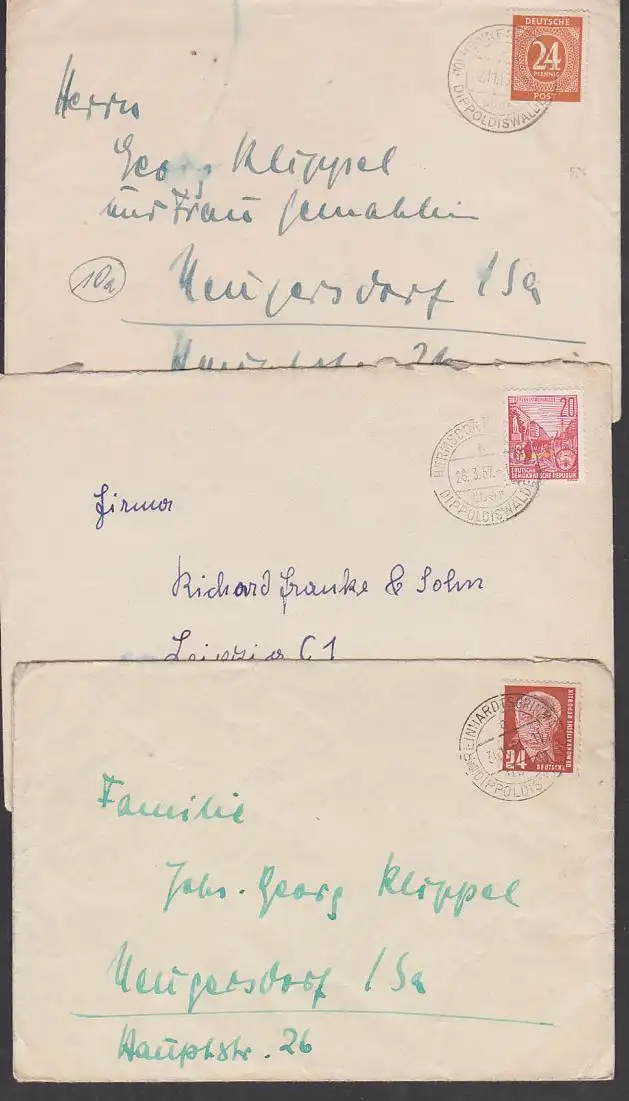 DEUTSCHE
24
PFENNIG
POST
DIPPOLDISWALDE
Herrn
Georg Klippel
und Frau Gemahlin
10a
Neugersdorf / Sa
20
DEUTSCHE
DEMOKRATISCHE REPUBLIK
HERMSDORF
26.3.57
über
DIPPOLDISWALDE
Firma
Richard Franke & Sohn
Leipzig C1
DEMOKRATISCHE REPUBLIK
24 DEUTSCHE
REINHARDTSGRIMMA
DIPPOLDIS
Familie
Joh. Georg Klippel
Neugersdorf / Sa
Hauptstr. 26